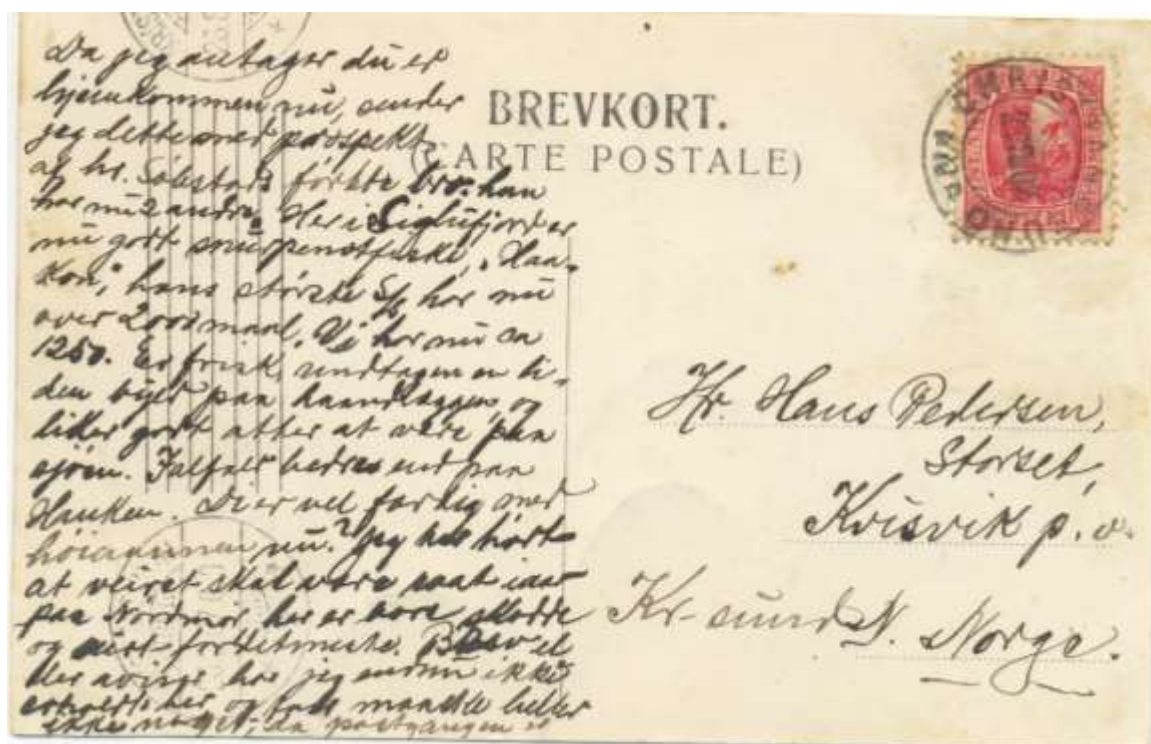 Da jeg antager du er
hjemkommen nu, sender
jeg dette med prospekt
af hr. Søbstads første bro. han
har nu 2 andre. Her i Siglufjord er
nu godt snurpenotfiske, „Haa-
kon”, hans største S/S har nu
over 2000 maal. Vi har nu ca
1250. Er frisk, undtagen en li-
den byld paa haandleggen, og
liker godt atter at være paa
sjøen. Ialfald bedre end paa
Hauken. Di er vel færdig med
høiaannen nu? Jeg har hørt
at veiret skal være vaat iaar
paa Nordmør, her er bare skodde
og surt fordetmeste. Brev el
ler aviser har jeg endnu ikke
erholdt her og faar maaske heller
ikke noget, da postgangen er
BREVKORT.
(CARTE POSTALE)
Hr. Hans Pedersen,
Storset,
Kvisvik p. o.
Kr-sund N. Norge.